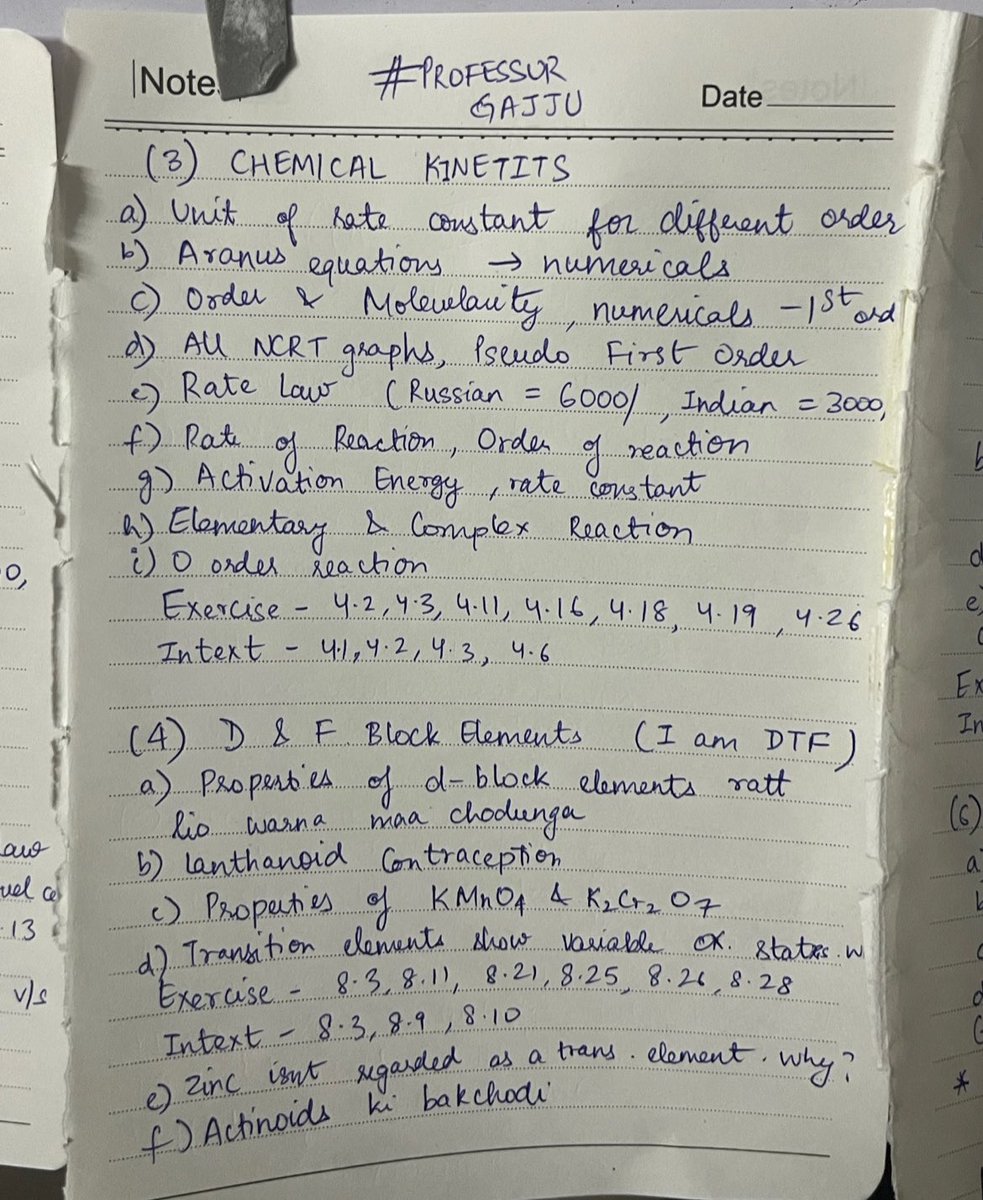 Note
#PROFESSUR
GAJJU
Date
(3) CHEMICAL KINETITS
a) Unit of rate constant for different order
b) Aranus equations → numericals
c) Order & Moleculearity, numericals - 1st ord
d) All NCRT graphs, Pseudo First Order
e) Rate Law (Russian = 6000/, Indian = 3000,
f) Rate of Reaction, Order of reaction
g) Activation Energy, rate constant
h) Elementary & Complex Reaction
i) 0 order reaction
Exercise - 4.2, 4.3, 4.11, 4.16, 4.18, 4.19, 4.26
Intext - 4.1, 4.2, 4.3, 4.6
(4) D & F Block Elements (I am DTF)
a) Properties of d-block elements ratt
lio warna maa chodunga
b) lanthanoid Contraception
c) Properties of KMnO4 & K2Cr2O7
d) Transition elements show variable ox. states. w
Exercise - 8.3, 8.11, 8.21, 8.25, 8.26, 8.28
Intext - 8.3, 8.9, 8.10
e) Zinc isnt regarded as a trans. element. why?
f) Actinoids ki bakchodi
0,
13
v/s
b
d
e)
Ex
In
(6)
a
*